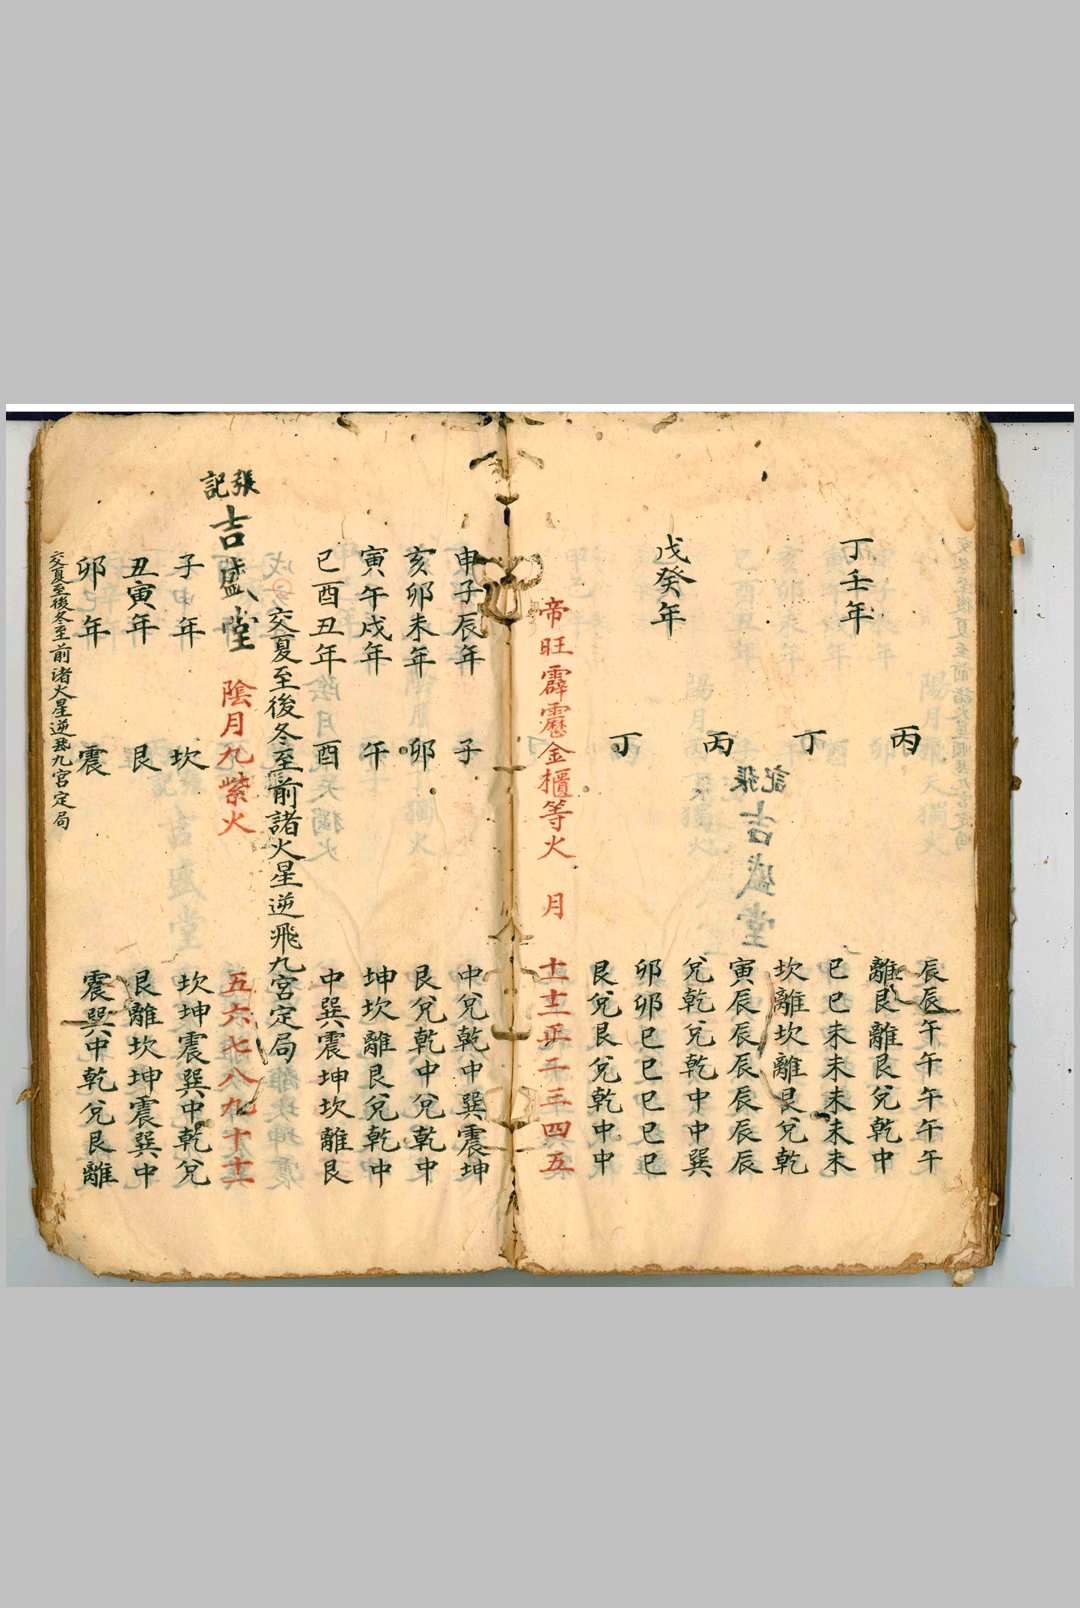 辰辰午午午午午
丙
離艮離艮兌乾中
丁壬年
巳巳未未未未未
丁
坎離坎離艮兌乾
張記吉盛堂
寅辰辰辰辰辰辰
丙
兌乾兌乾中中巽
戊癸年
卯卯巳巳巳巳巳
丁
艮兌艮兌乾中中
帝旺霹靂金櫃等火 月 十一十二正二三四五
申子辰年 子 中兌乾中巽震坤
亥卯未年 卯 艮兌乾中兌乾中
寅午戌年 午 坤坎離艮兌乾中
巳酉丑年 酉 中巽震坤坎離艮
交夏至後冬至前諸火星逆飛九宮定局
張記吉盛堂
陰月九紫火 五六七八九十十一
子申年 坎 坎坤震巽中乾兌
丑寅年 艮 艮離坎坤震巽中
卯巳年 震 震巽中乾兌艮離
交夏至後冬至前诸火星逆飛九宮定局